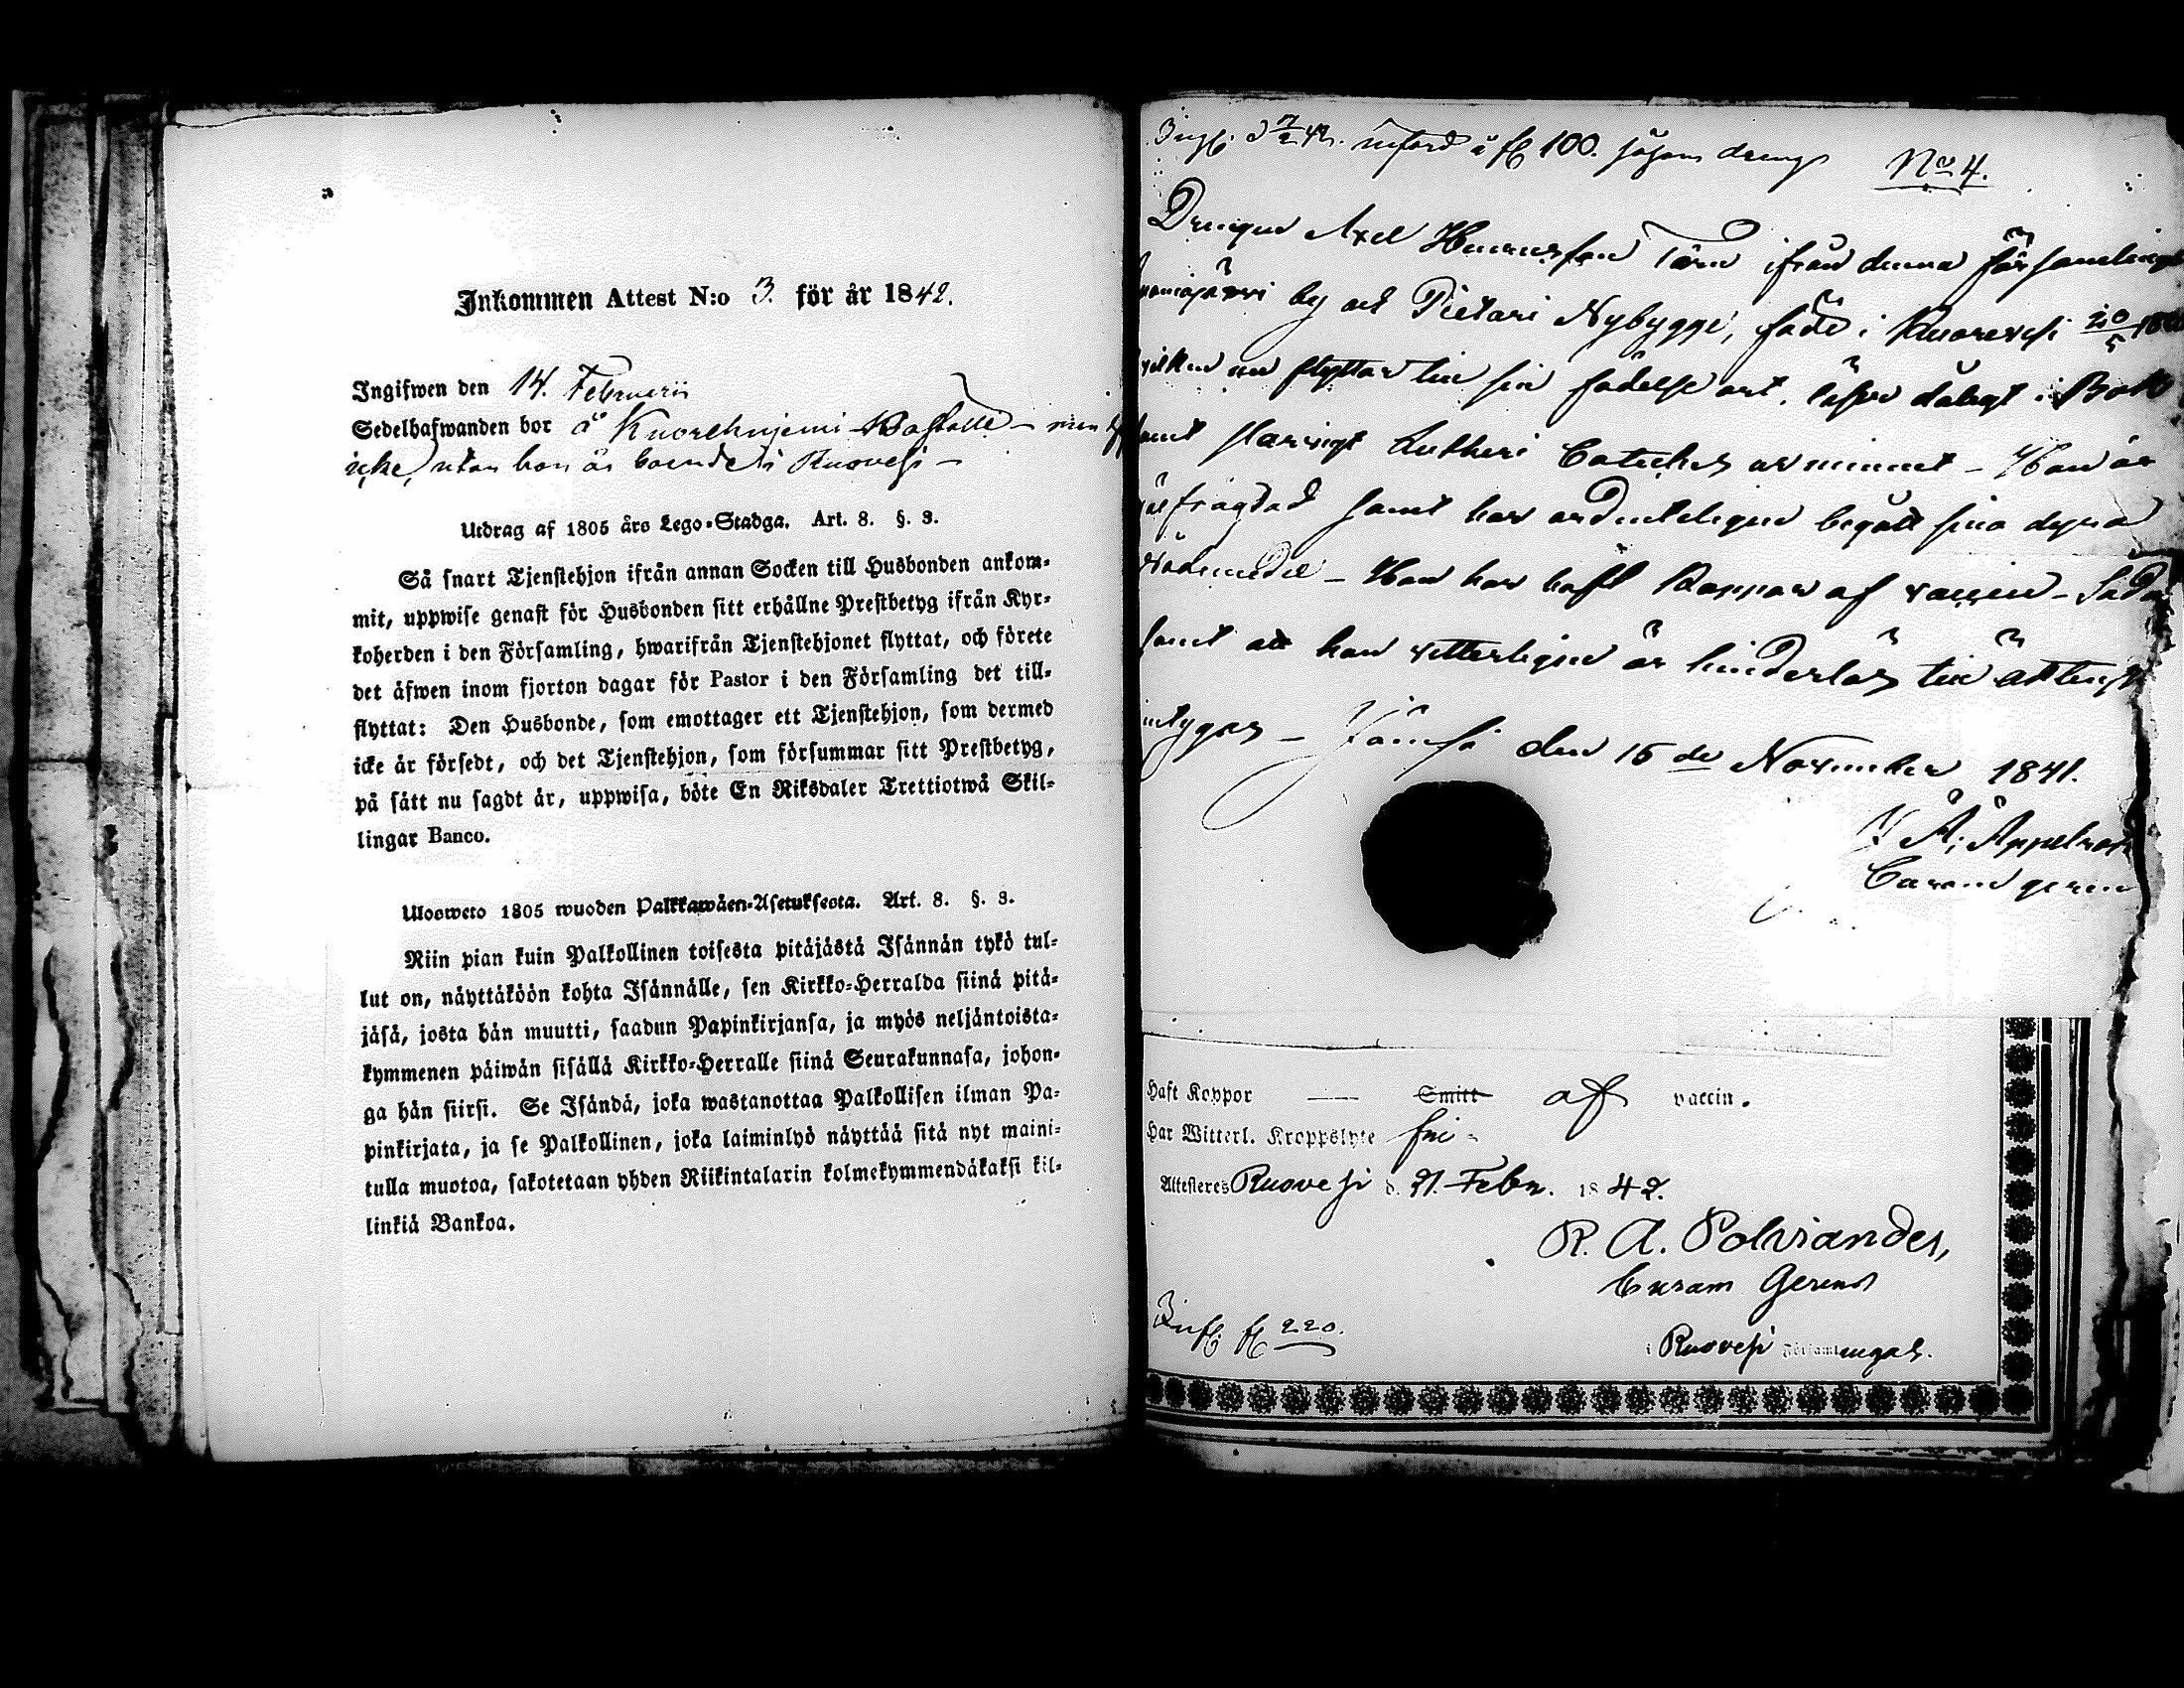 Inkommen Attest N:o 3. för år 1842.
Ingifwen den 14. Februarii
Sedelhafwanden bor å Kuorehnjemi Boställe – men
icke, utan han är boende i Ruovesi –
Utdrag af 1805 års Lego-Stadga. Art. 8. §. 3.
Så snart Tjenstehjon ifrån annan Socken till Husbonden ankom-
mit, uppwise genast för Husbonden sitt erhållne Prestbetyg ifrån Kyr-
koherden i den Församling, hwarifrån Tjenstehjonet flyttat, och förete
det äfwen inom fjorton dagar för Pastor i den Församling det till-
flyttat: Den Husbonde, som emottager ett Tjenstehjon, som dermed
icke är försedt, och det Tjenstehjon, som försummar sitt Prestbetyg,
på sätt nu sagdt är, uppwisa, böte En Riksdaler Trettiotwå Skil-
lingar Banco.
Ulosweto 1805 wuoden Palkkawäen-Asetuksesta. Art. 8. §. 3.
Niin pian kuin Palkollinen toisesta pitäjästä Isännän tykö tul-
lut on, näyttäköön kohta Isännälle, sen Kirkko-Herralda siinä pitä-
jäsä, josta hän muutti, saadun Papinkirjansa, ja myös neljäntoista-
kymmenen päiwän sisällä Kirkko-Herralle siinä Seurakunnasa, johon-
ga hän siirsi. Se Isändä, joka wastanottaa Palkollisen ilman Pa-
pinkirjata, ja se Palkollinen, joka laiminlyö näyttää sitä nyt maini-
tulla muotoa, sakotetaan yhden Riikintalarin kolmekymmendäkaksi kil-
linkiä Bankoa.
införd å 100. såsom dreng No 4.
Drengen Axel Henricsson Törn ifrån denna församlings
by och Pietari Nybygge, född i Kuorevesi 20/5
nu flyttar till sin födelse ort, läser dåligt i Bok
samt Lutheri Catches ur minnet – Han är
samt har ordenteligen begått sina dyra
Nådemedel – Han har haft Koppor af vaccin –
samt att han vetterligen är hinderlös till ächtenskap
intygas – Jämsä den 15 de November 1841.
Haft Koppor — Smitt af vaccin.
Har Witterl. Kroppslyte fri
Attesteres Ruovesi d. 21. Febr. 1842.
R. A. Polviander,
Curam Gerens
i Ruovesi Församlingah.
220.